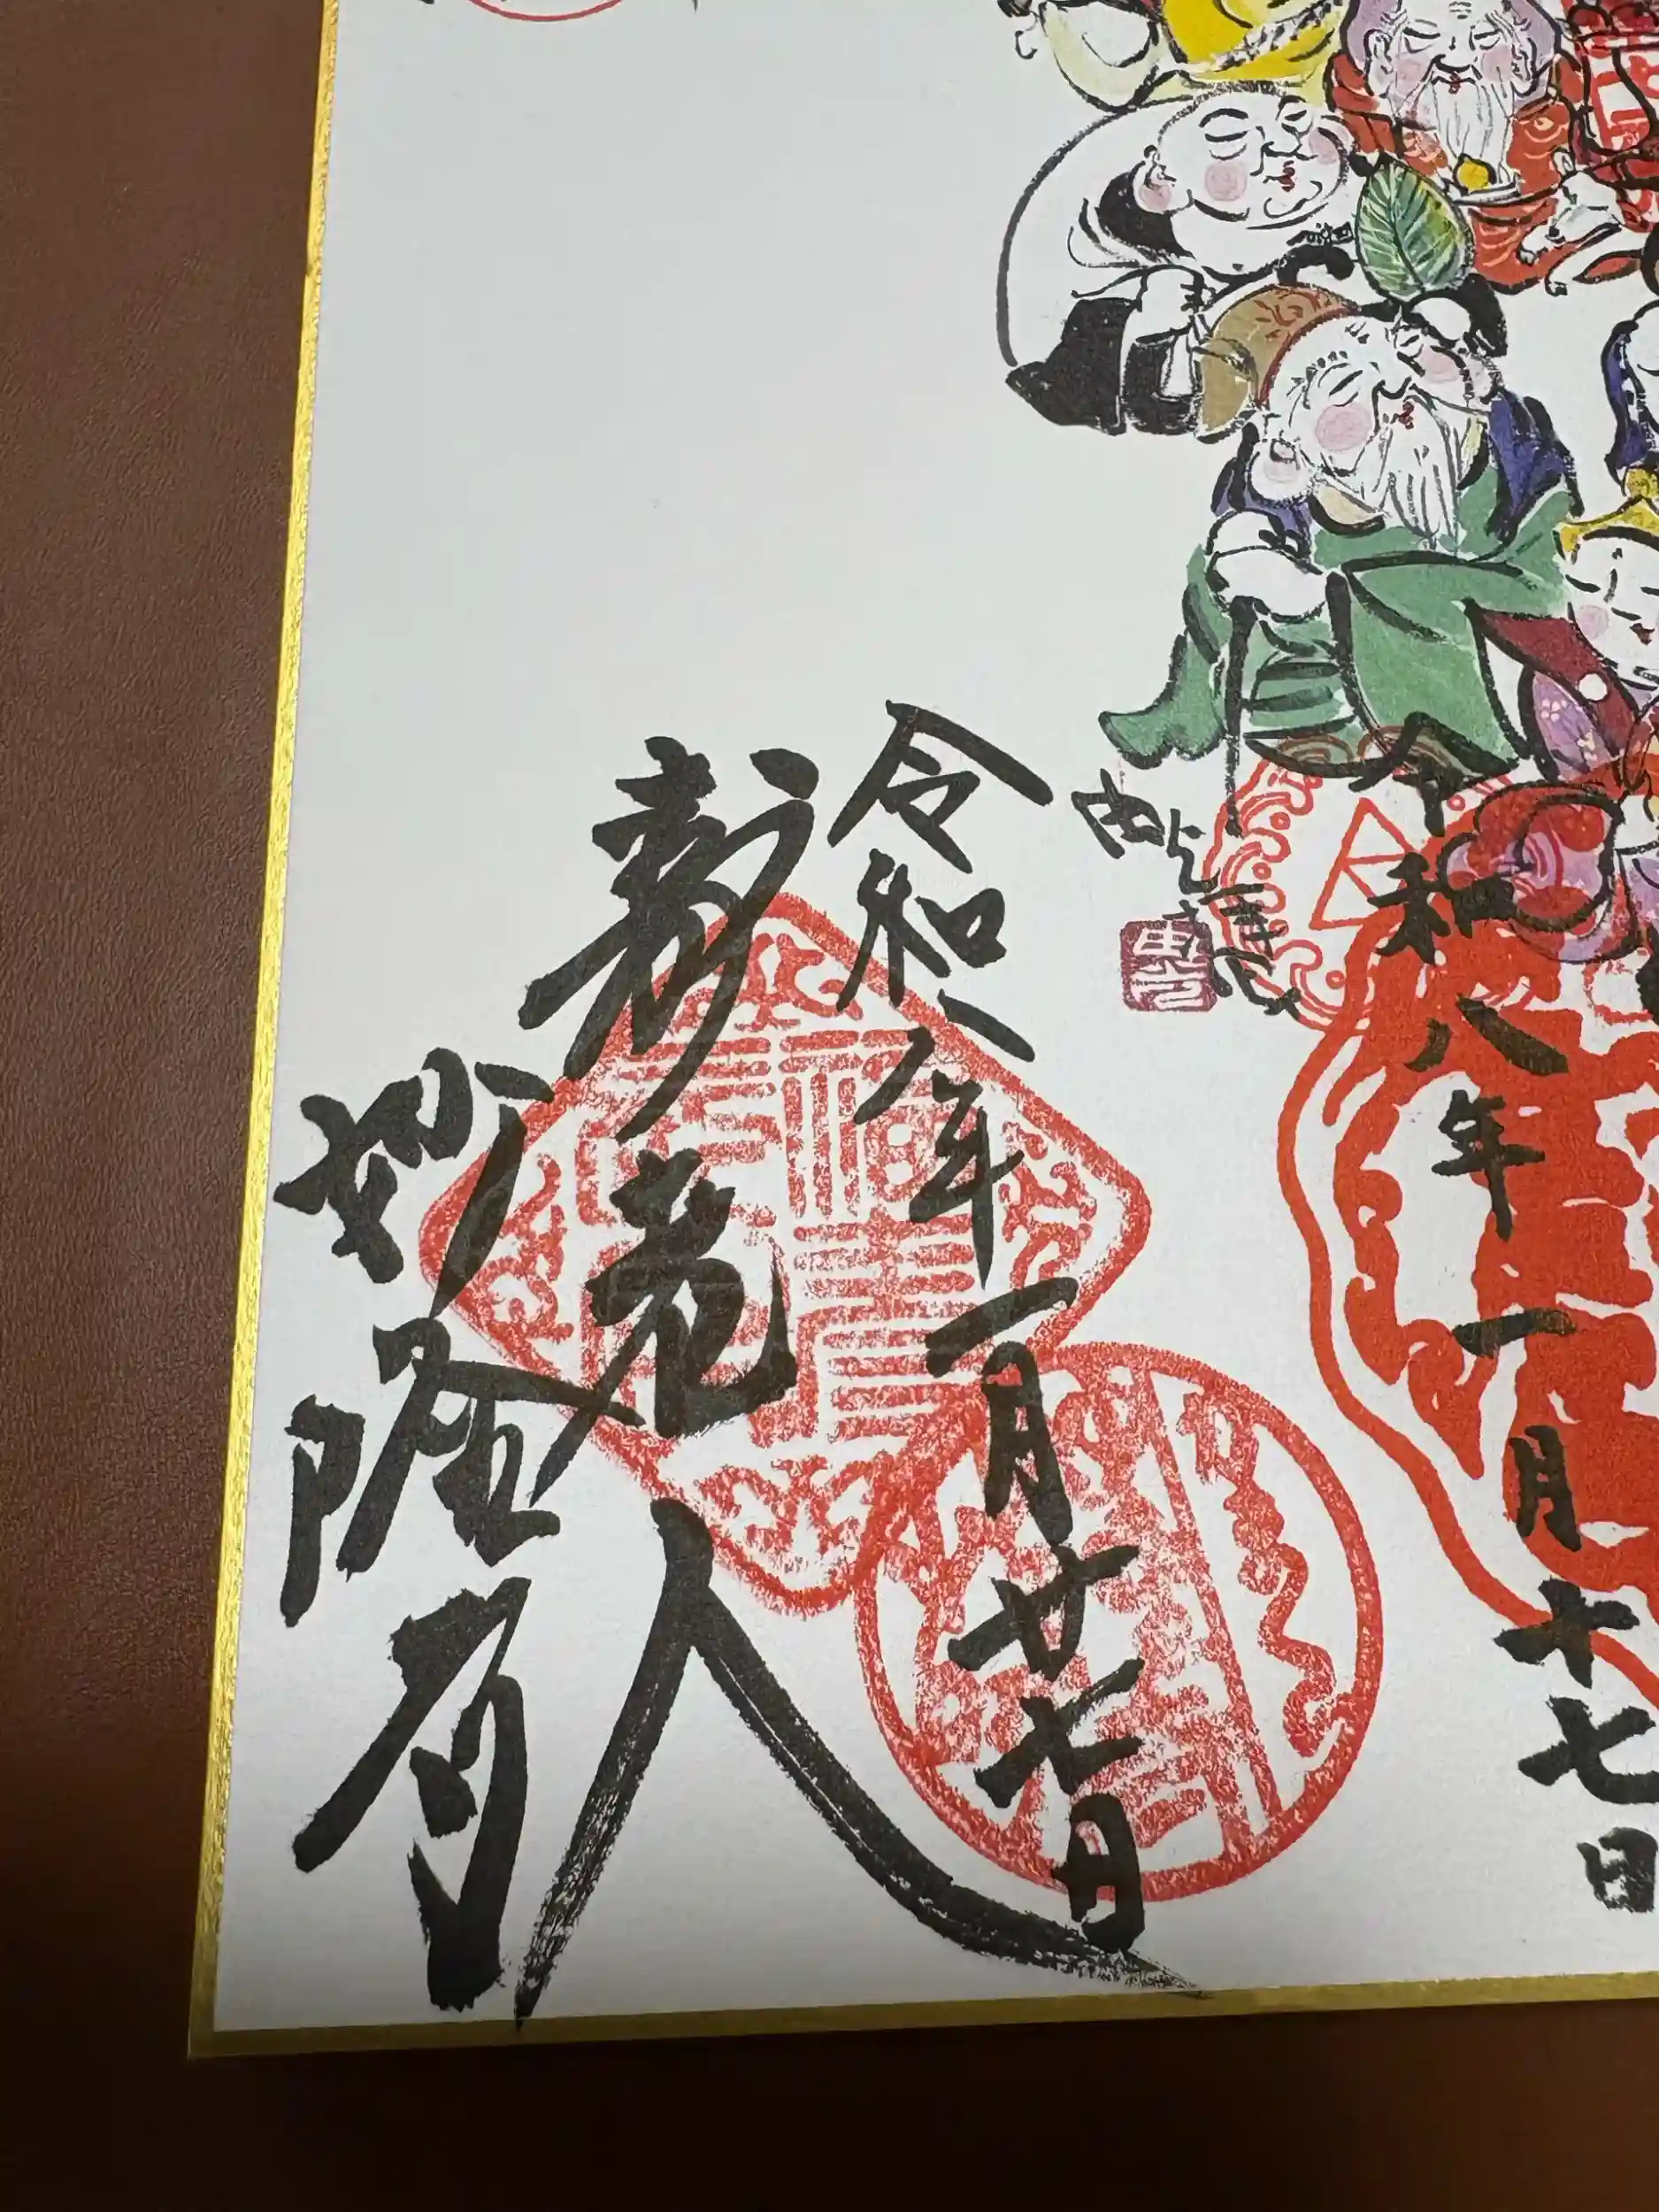 令和八年一月十七日
令和八年一月廿七日
寿老人
妙隆寺